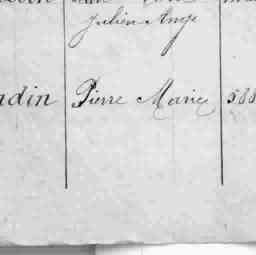 Julien Ange
ndin Pierre Marie 588